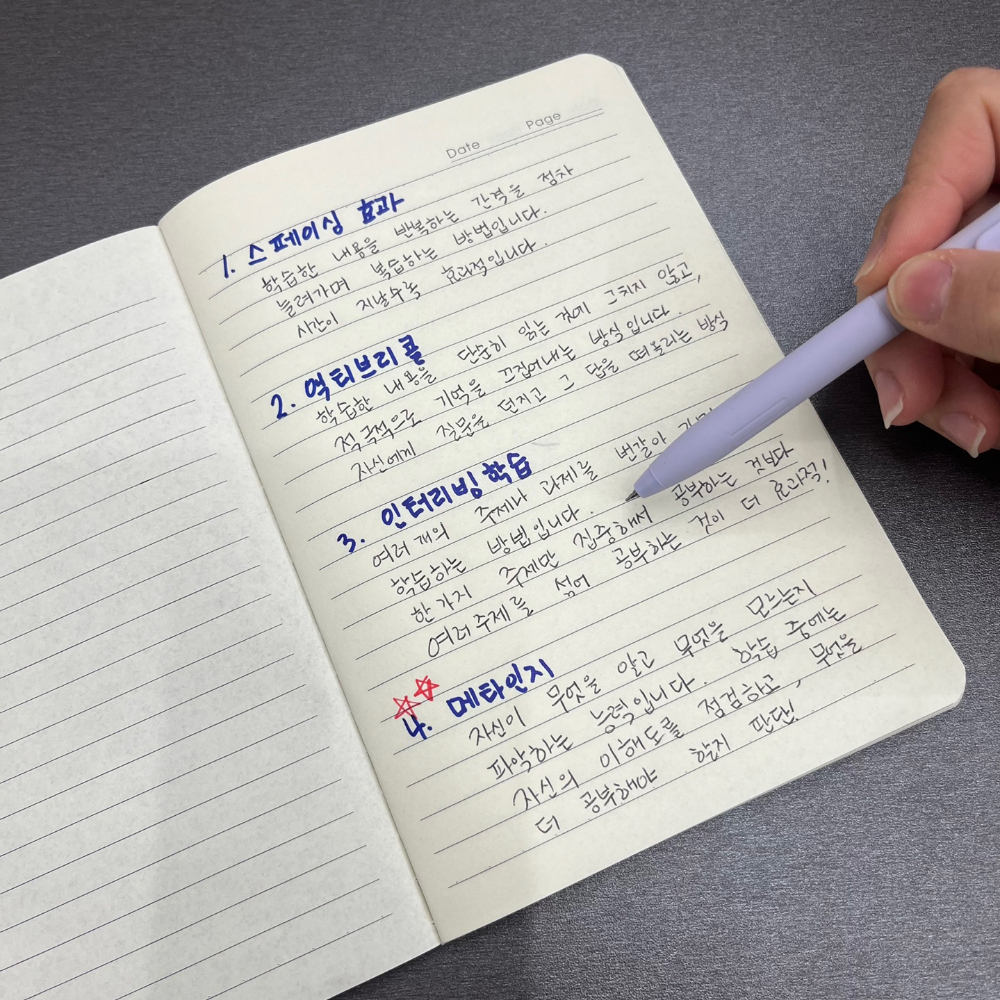 Date Page
1. 스페이싱 효과
학습한 내용을 반복하는 간격을 점차
늘려가며 복습하는 방법입니다.
시간이 지날수록 효과적입니다.
2. 액티브리콜
학습한 내용을 단순히 읽는 것에 그치지 않고,
적극적으로 기억을 끄집어내는 방식입니다.
자신에게 질문을 던지고 그 답을 떠올리는 방식
3. 인터리빙학습
여러 개의 주제나 과제를 번갈아
학습하는 방법입니다.
한가지 주제만 집중해서 공부하는 것보다
여러주제를 섞어 공부하는 것이 더 효과적!
4. 메타인지
자신이 무엇을 알고 무엇을 모르는지
파악하는 능력입니다. 학습 중에는
자신의 이해도를 점검하고, 무엇을
더 공부해야 할지 판단!